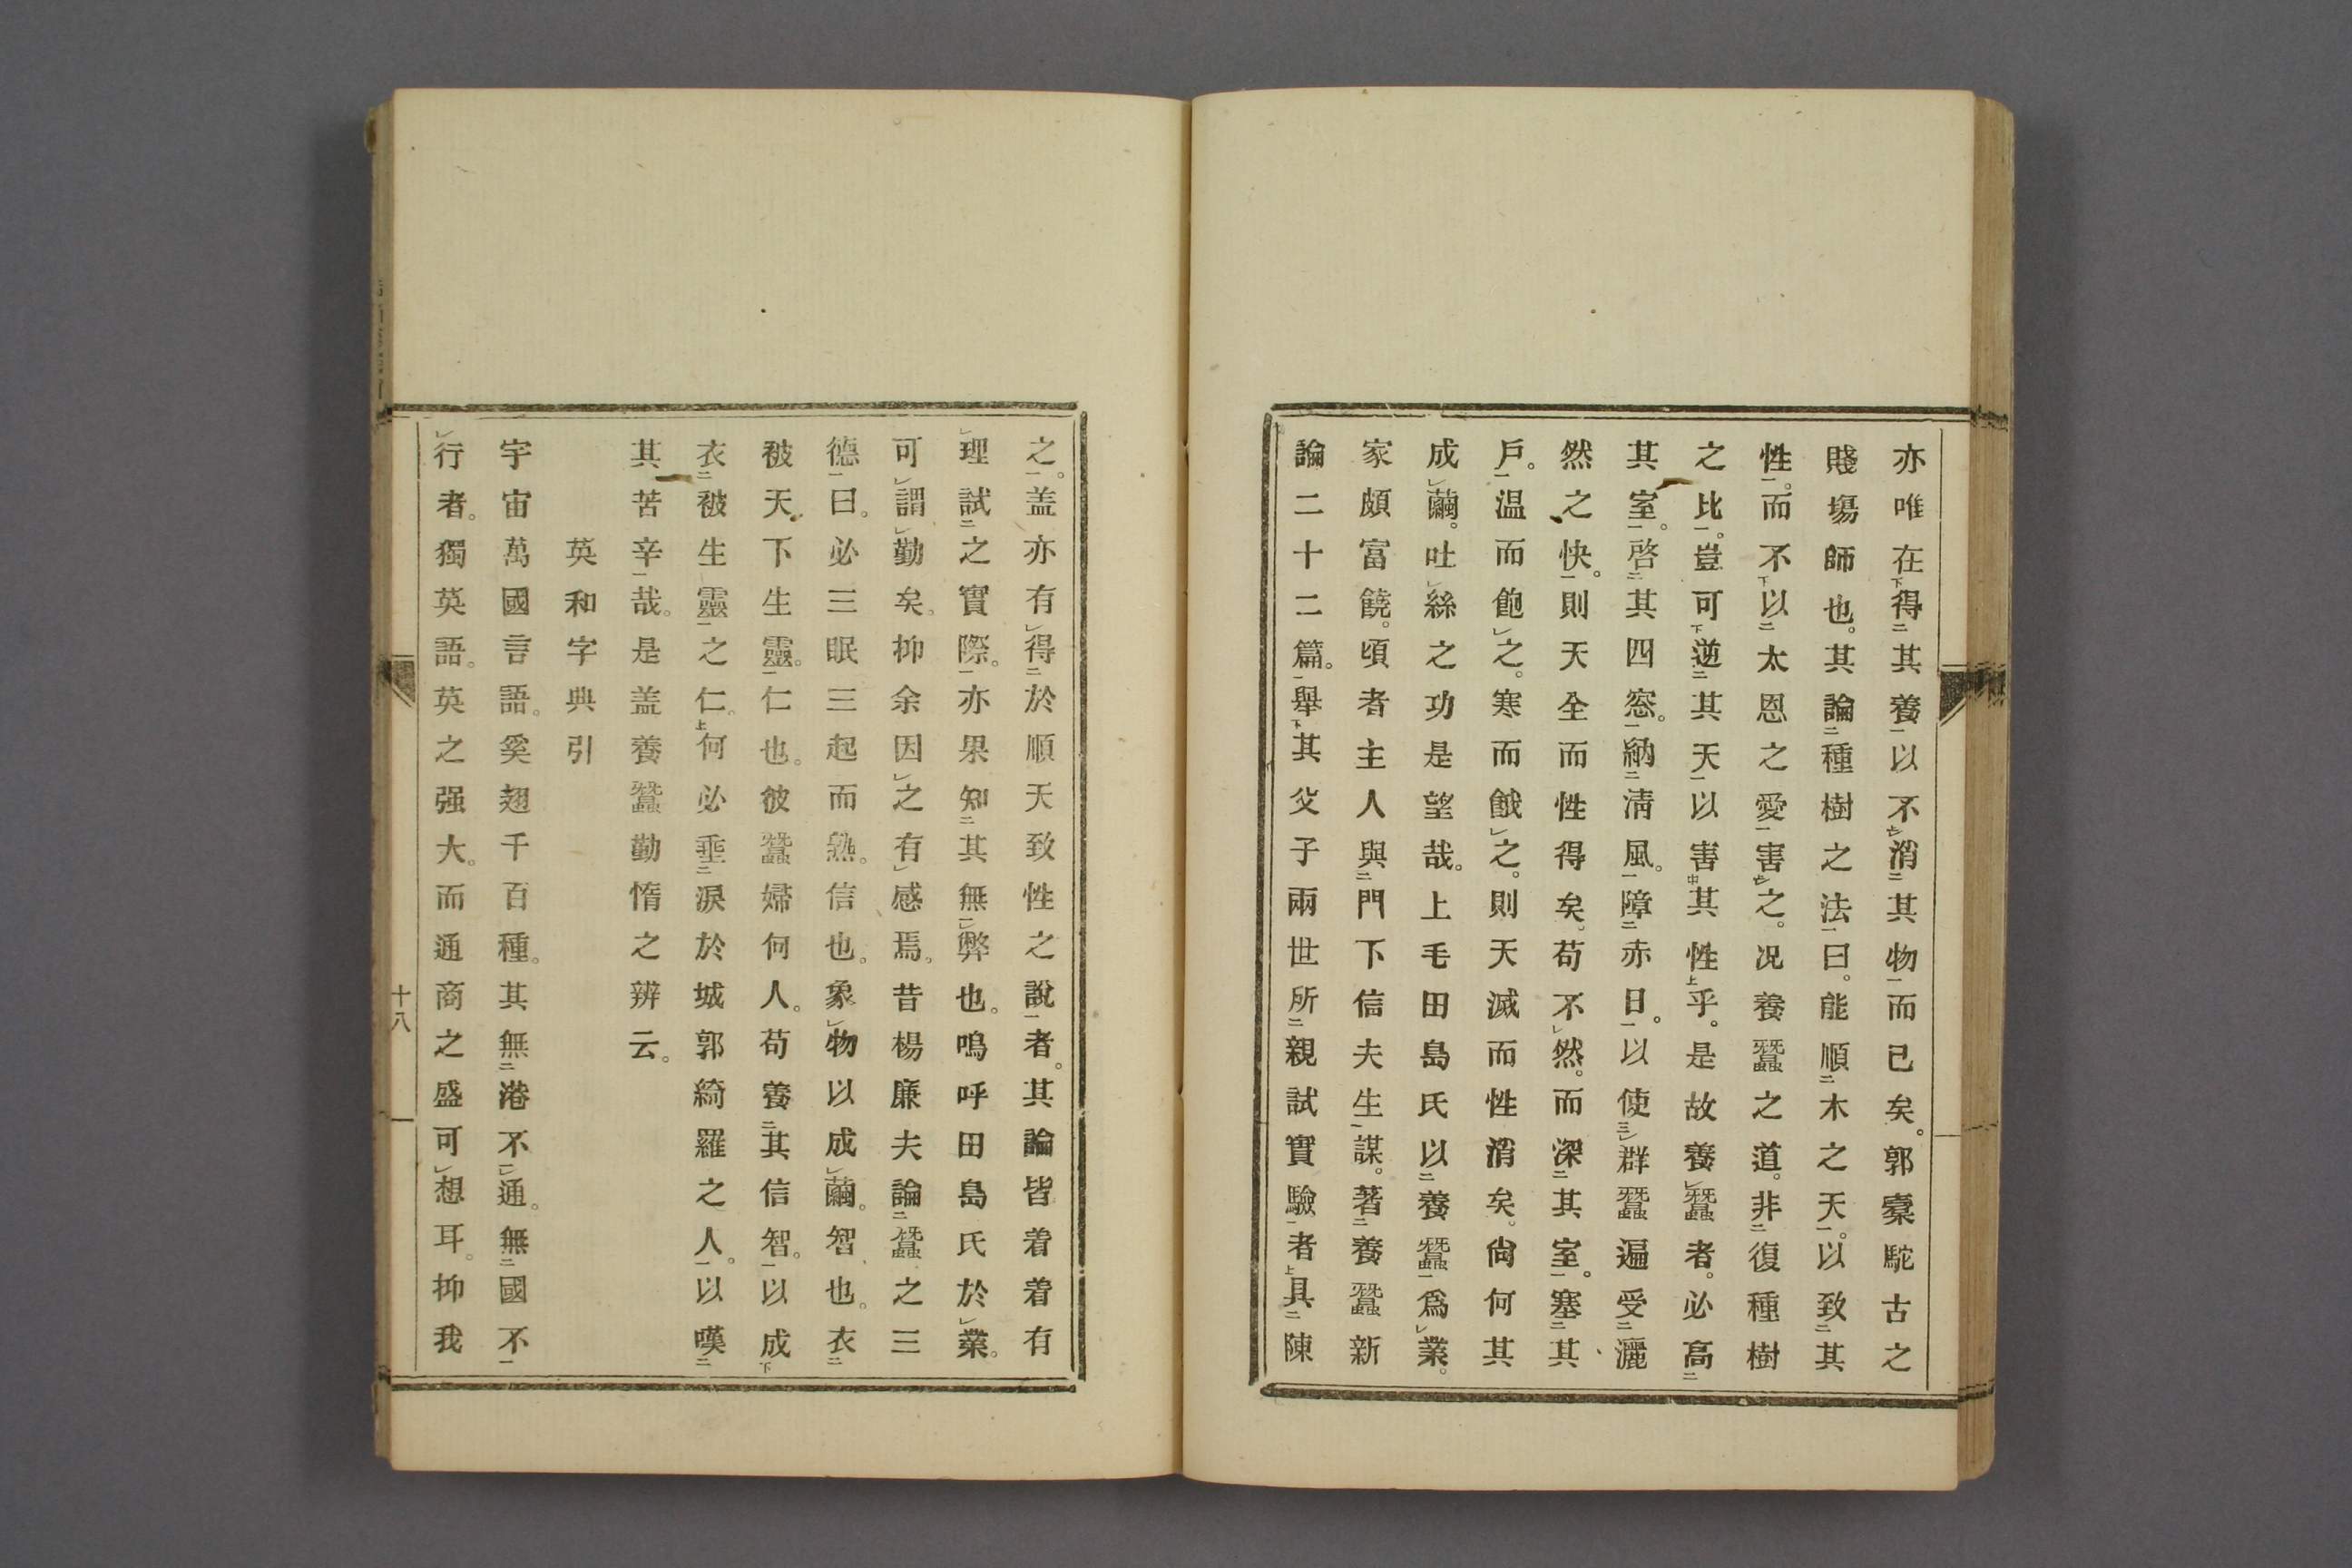 亦唯在得其養以不消其物而已矣。郭橐駝古之
賤塲師也。其論種樹之法曰。能順木之天。以致其
性。而不以太恩之愛害之。况養蠶之道。非復種樹
之比。豈可逆其天以害其性乎。是故養蠶者。必高
其室。啓其四窓。納淸風。障赤日。以使群蠶遍受灑
然之快。則天全而性得矣。苟不然。而深其室。塞其
戶。温而飽之。寒而餓之。則天滅而性消矣。尙何其
成繭。吐絲之功是望哉。上毛田島氏以養蠶爲業。
家頗富饒。頃者主人與門下信夫生謀。著養蠶新
論二十二篇。擧其父子兩世所親試實驗者具陳
之。盖亦有得於順天致性之說者。其論皆着着有
理試之實際。亦果知其無弊也。鳴呼田島氏於業。
可謂勤矣。抑余因之有感焉。昔楊廉夫論蠶之三
德曰。必三眠三起而熟。信也。象物以成繭。智也。衣
被天下生靈。仁也。彼蠶婦何人。苟養其信智。以成
衣被生靈之仁。何必垂淚於城郭綺羅之人。以嘆
其苦辛哉。是盖養蠶勤惰之辨云。
英和字典引
宇宙萬國言語。奚翅千百種。其無港不通。無國不
行者。獨英語。英之强大。而通商之盛可想耳。抑我
十八